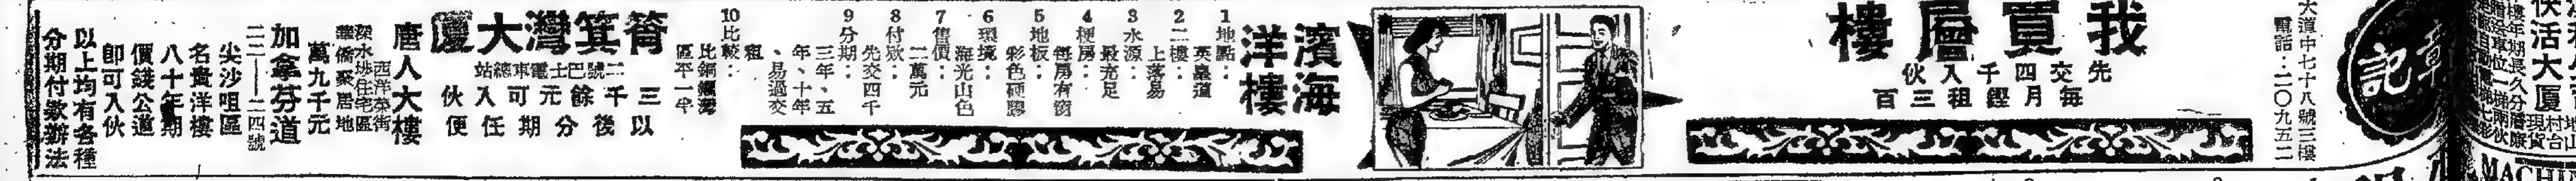 章記
大道中七十八號三樓
電話：二〇九五二
我買層樓
先交四千入伙
每月租鏗三百
濱海洋樓
1地點：
英皇道
2二樓：
上落易
3水源：
最充足
4梗房：
每房有窗
5地板：
彩色硬膠
6環境：
海光山色
7售價：
二萬元
8付欵：
先交四千
9分期：
三年、五年、十年、易過交租
10比較：
比銅鑼灣區平一半
筲箕灣大廈
二號巴士電車總站
三千餘元可入伙
以後分期任便
唐人大樓
西洋菜街
深水埗住宅區
華僑聚居地
萬九千元
加拿芬道
二二——二四號
尖沙咀區
名貴洋樓
八十年期
價錢公道
即可入伙
以上均有各種
分期付欵辦法